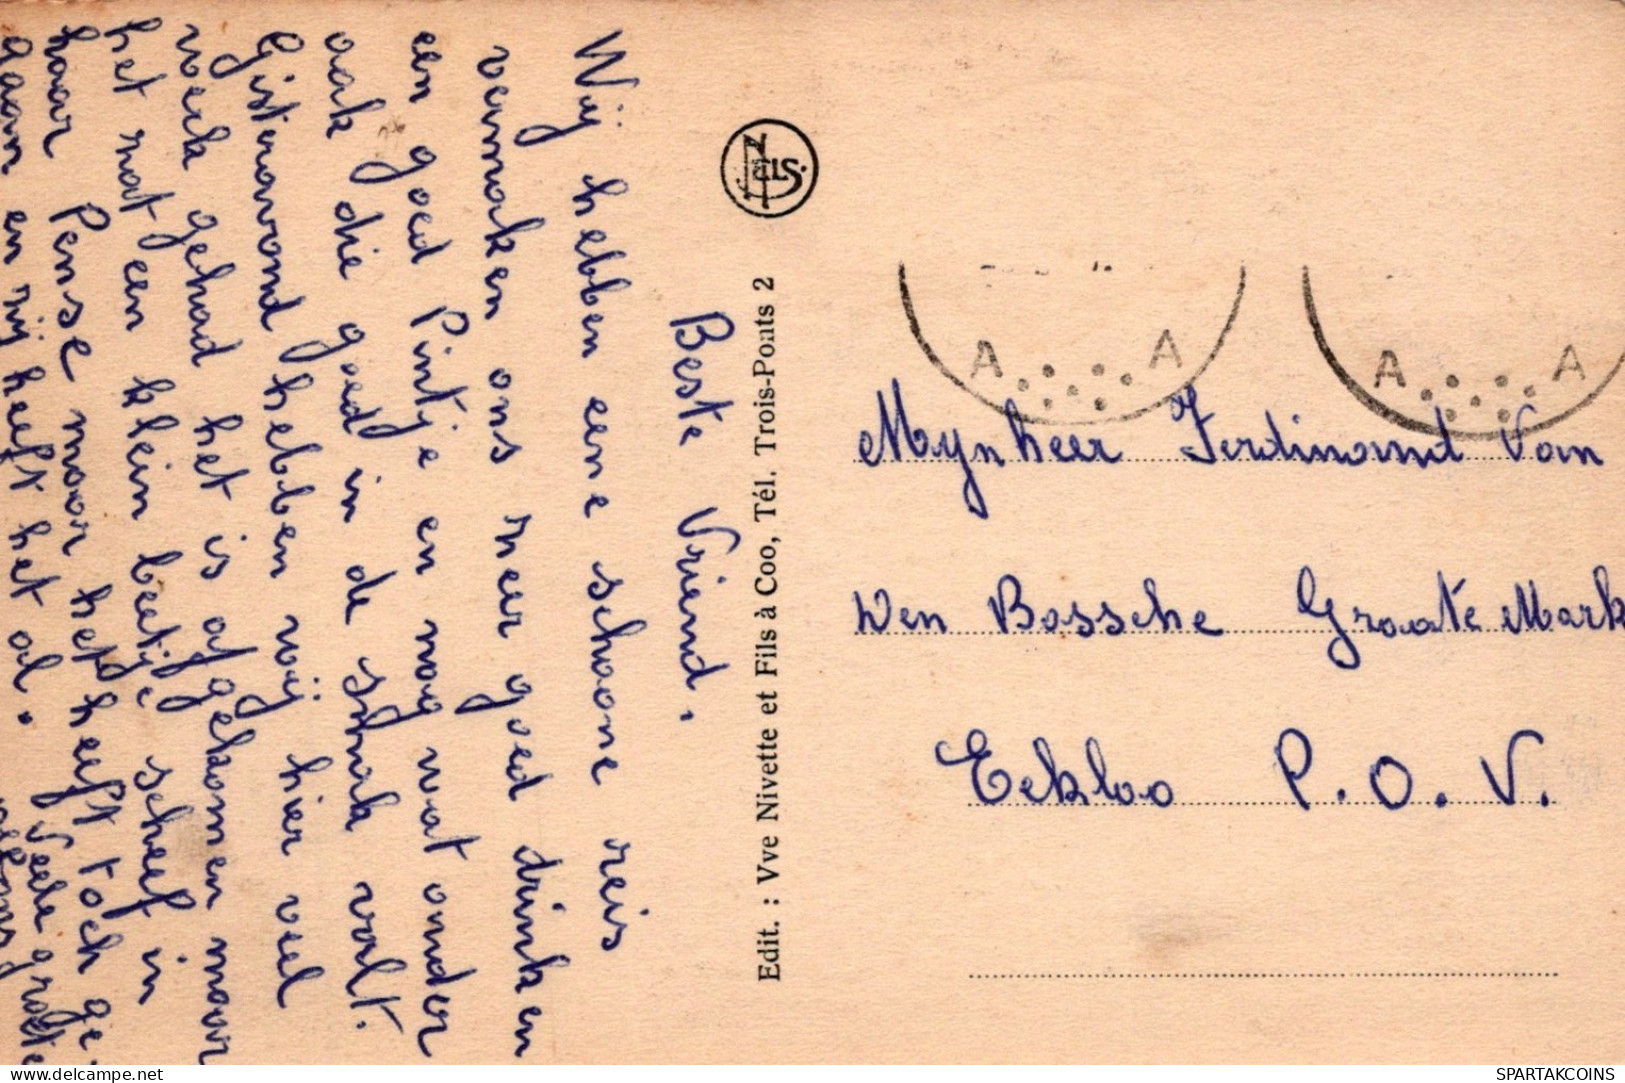 Beste Vriend.
Wij hebben eene schoone reis
vermaken ons neer goed drinken
een goed Pintje en nog wat onder
ook die goed in de smak valt.
Gisteravond hebben wij hier veel
werk gehad het is afgekomen maar
het wat een klein beetje scheef in
haar Pense maar het heeft toch ge.
gaan en zij heeft het al.
Veele groete
Alfons
NELS.
Edit. : Vve Nivette et Fils à Coo, Tél. Trois-Ponts 2
A A
A A
Mynheer Ferdinand Van
Den Bossche Groote Mark
Eekloo P. O. V.
delcampe.net
SPARTAKCOINS